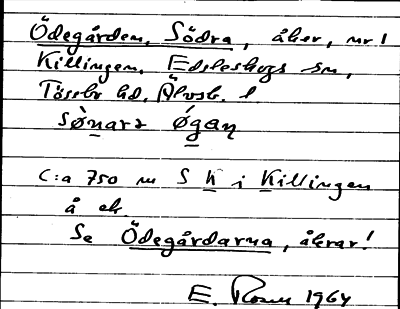 Ödegården, Södra, åker, nr 1
Killingen, Edsleskogs sn,
Tössbo hd. Älvsb. l
sø̀narə ǿgaɳ
C:a 750 m S K i Killingen
å ek
Se Ödegårdarna, åkrar!
E. Rosen 1964